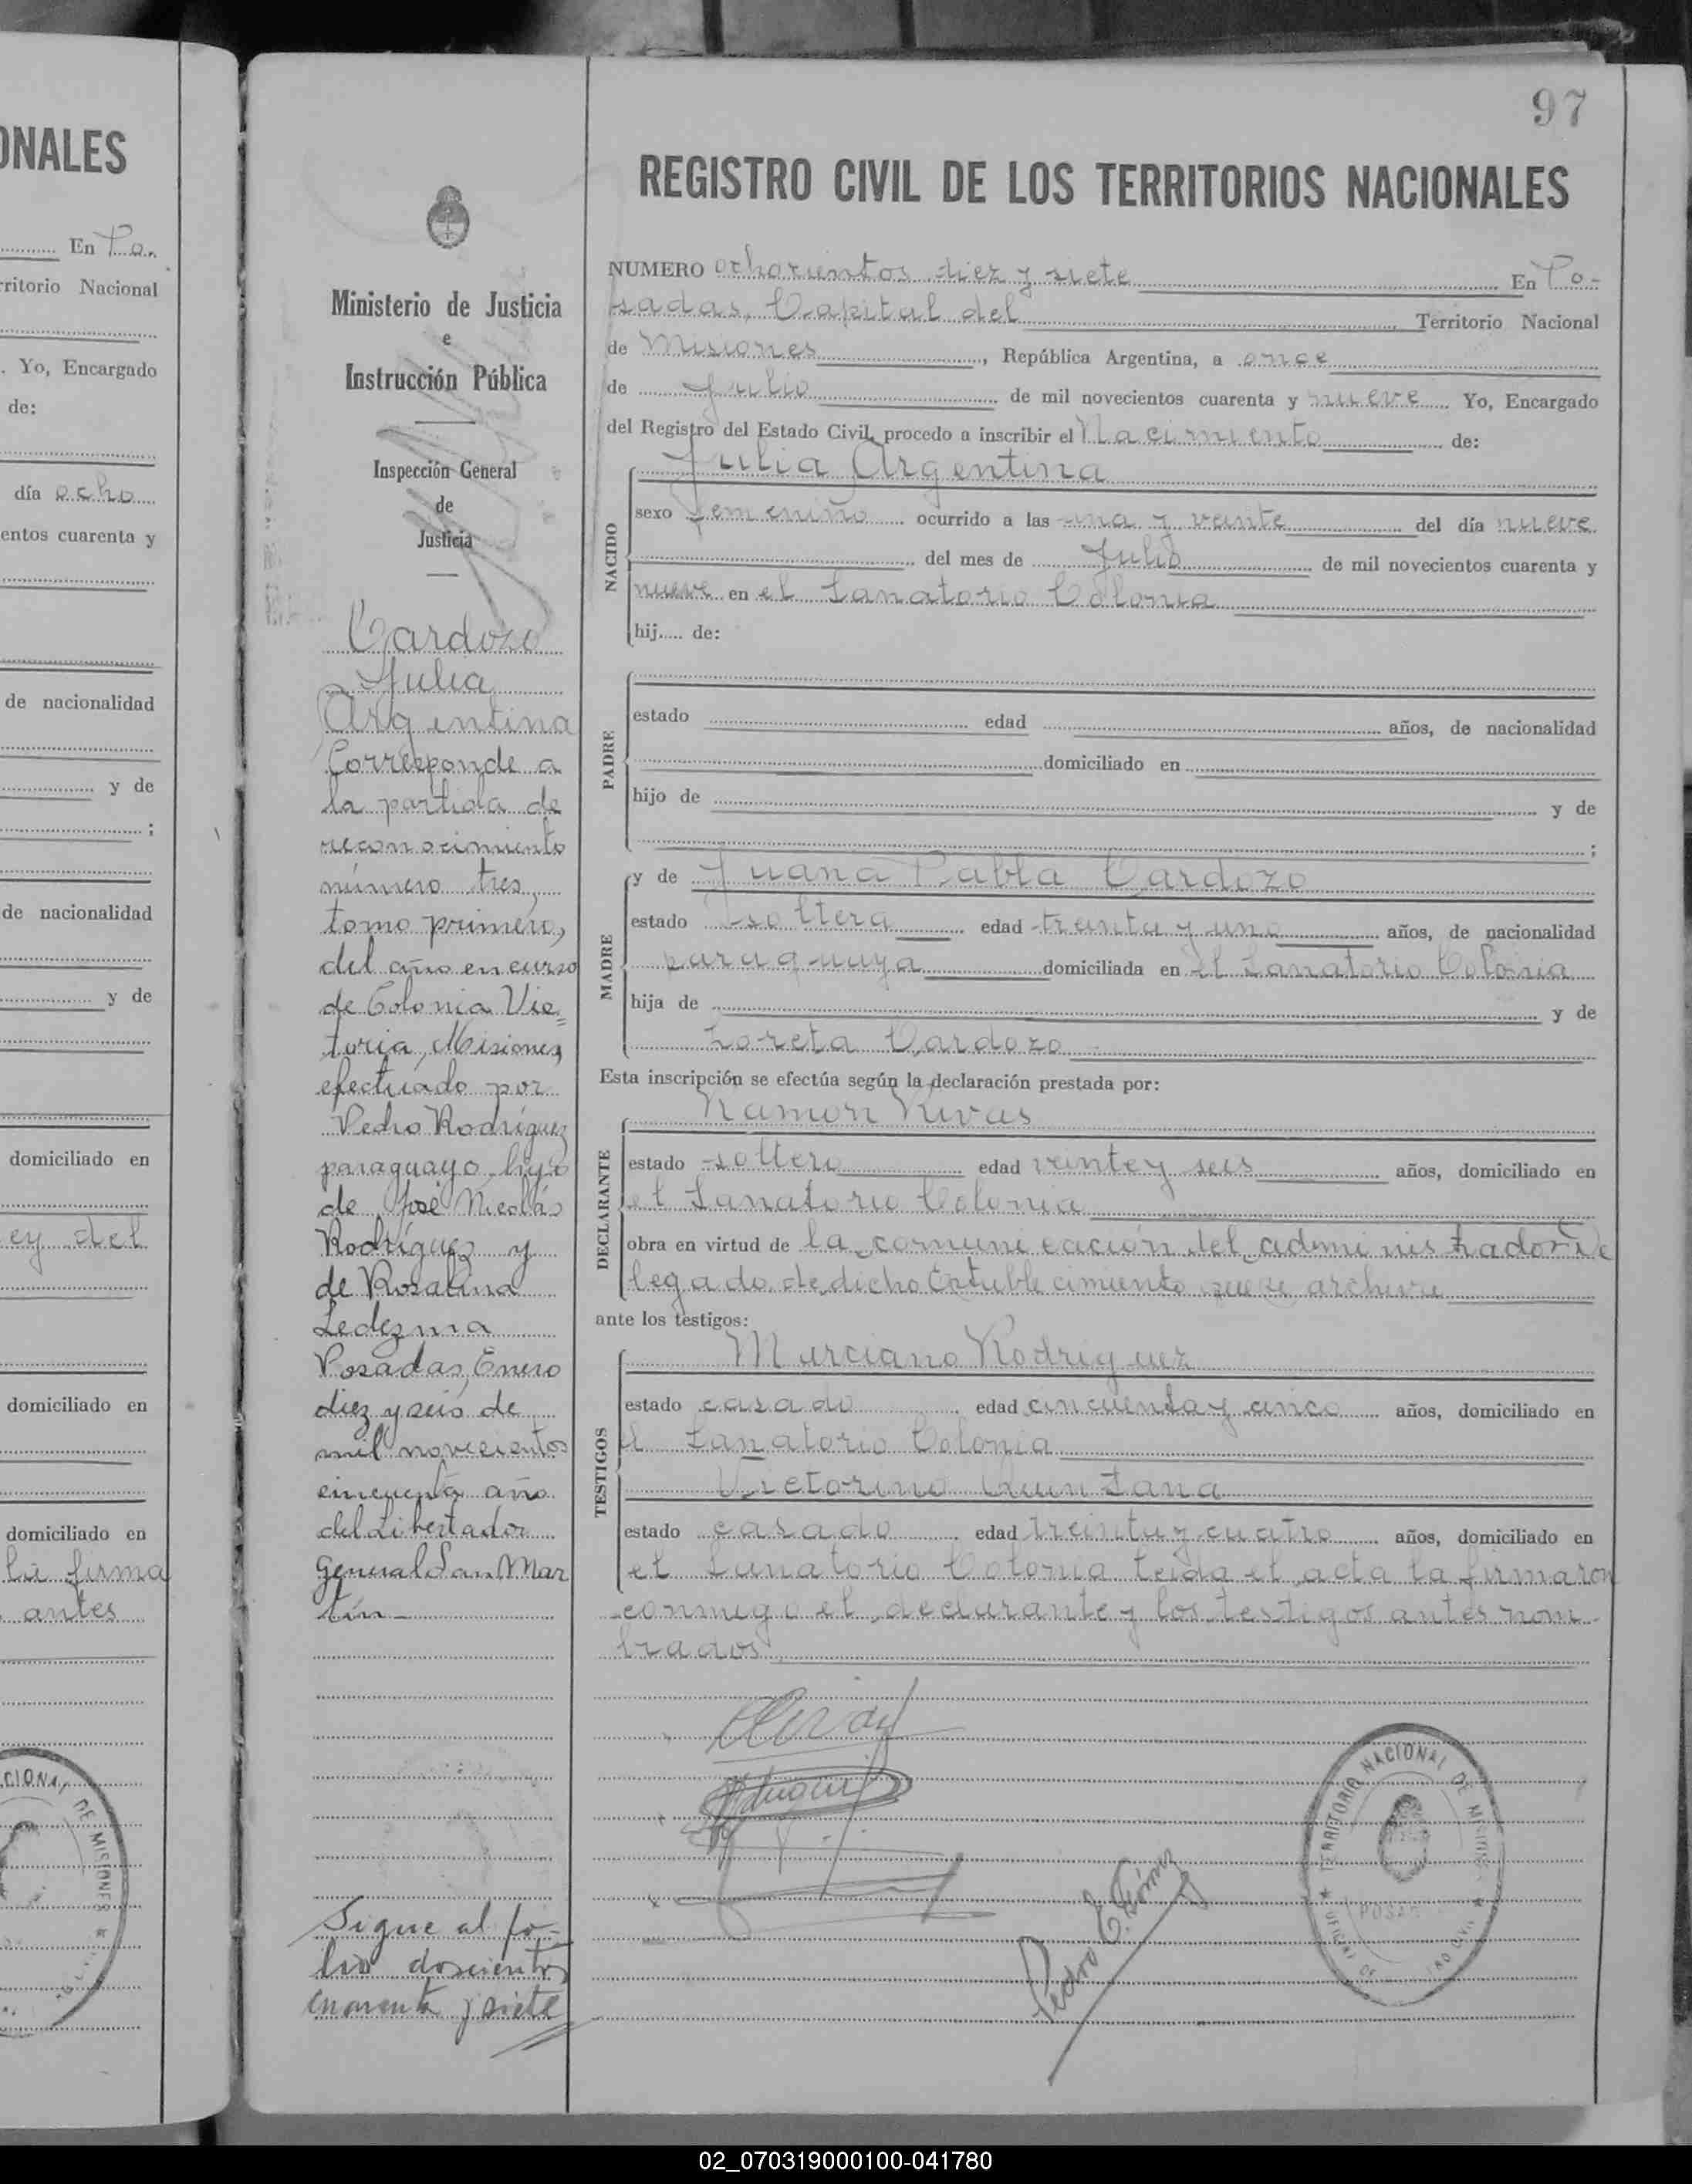 ONALES
En Po-
rritorio Nacional
. Yo, Encargado
de:
día ocho
entos cuarenta y
de nacionalidad
y de
;
de nacionalidad
y de
domiciliado en
ey del
domiciliado en
domiciliado en
la firma
antes
CIONAL DE MISIONES
97
REGISTRO CIVIL DE LOS TERRITORIOS NACIONALES
Ministerio de Justicia
e
Instrucción Pública
Inspección General
de
Justicia
Cardozo
Julia
Argentina
Corresponde a
la partida de
reconocimiento
número tres,
tomo primero,
del año en curso
de Colonia Vic=
toria, Misiones,
efectuado por
Pedro Rodríguez
paraguayo, hijo
de José Nicolás
Rodríguez y
de Rosalina
Ledezma
Posadas, Enero
diez y seis de
mil novecientos
cincuenta año
del Libertador
General San Mar
tín
Sigue al fo-
lio doscientos
cuarenta y siete
NUMERO ochocientos diez y siete En Po-
sadas, Capital del Territorio Nacional
de Misiones, República Argentina, a once
de Julio de mil novecientos cuarenta y nueve Yo, Encargado
del Registro del Estado Civil, procedo a inscribir el Nacimiento de:
NACIDO
Julia Argentina
sexo femenino ocurrido a las una y veinte del día nueve
del mes de Julio de mil novecientos cuarenta y
nueve en el Sanatorio Colonia
hij.... de:
PADRE
estado edad años, de nacionalidad
domiciliado en
hijo de y de
;
MADRE
y de Juana Pabla Cardozo
estado soltera edad treinta y uno años, de nacionalidad
paraguaya domiciliada en el Sanatorio Colonia
hija de y de
Loreta Cardozo
Esta inscripción se efectúa según la declaración prestada por:
DECLARANTE
Ramon Rivas
estado soltero edad veinte y seis años, domiciliado en
el Sanatorio Colonia
obra en virtud de la comunicación del administrador De
legado de dicho Establecimiento que se archive
ante los testigos:
TESTIGOS
Marciano Rodriguez
estado casado edad cincuenta y cinco años, domiciliado en
el Sanatorio Colonia
Victorino Quintana
estado casado edad treinta y cuatro años, domiciliado en
el Sanatorio Colonia leida el acta la firmaron
conmigo el declarante y los testigos antes nom-
brados
Pedro E.
TERRITORIO NACIONAL DE MISIONES
02_070319000100-041780